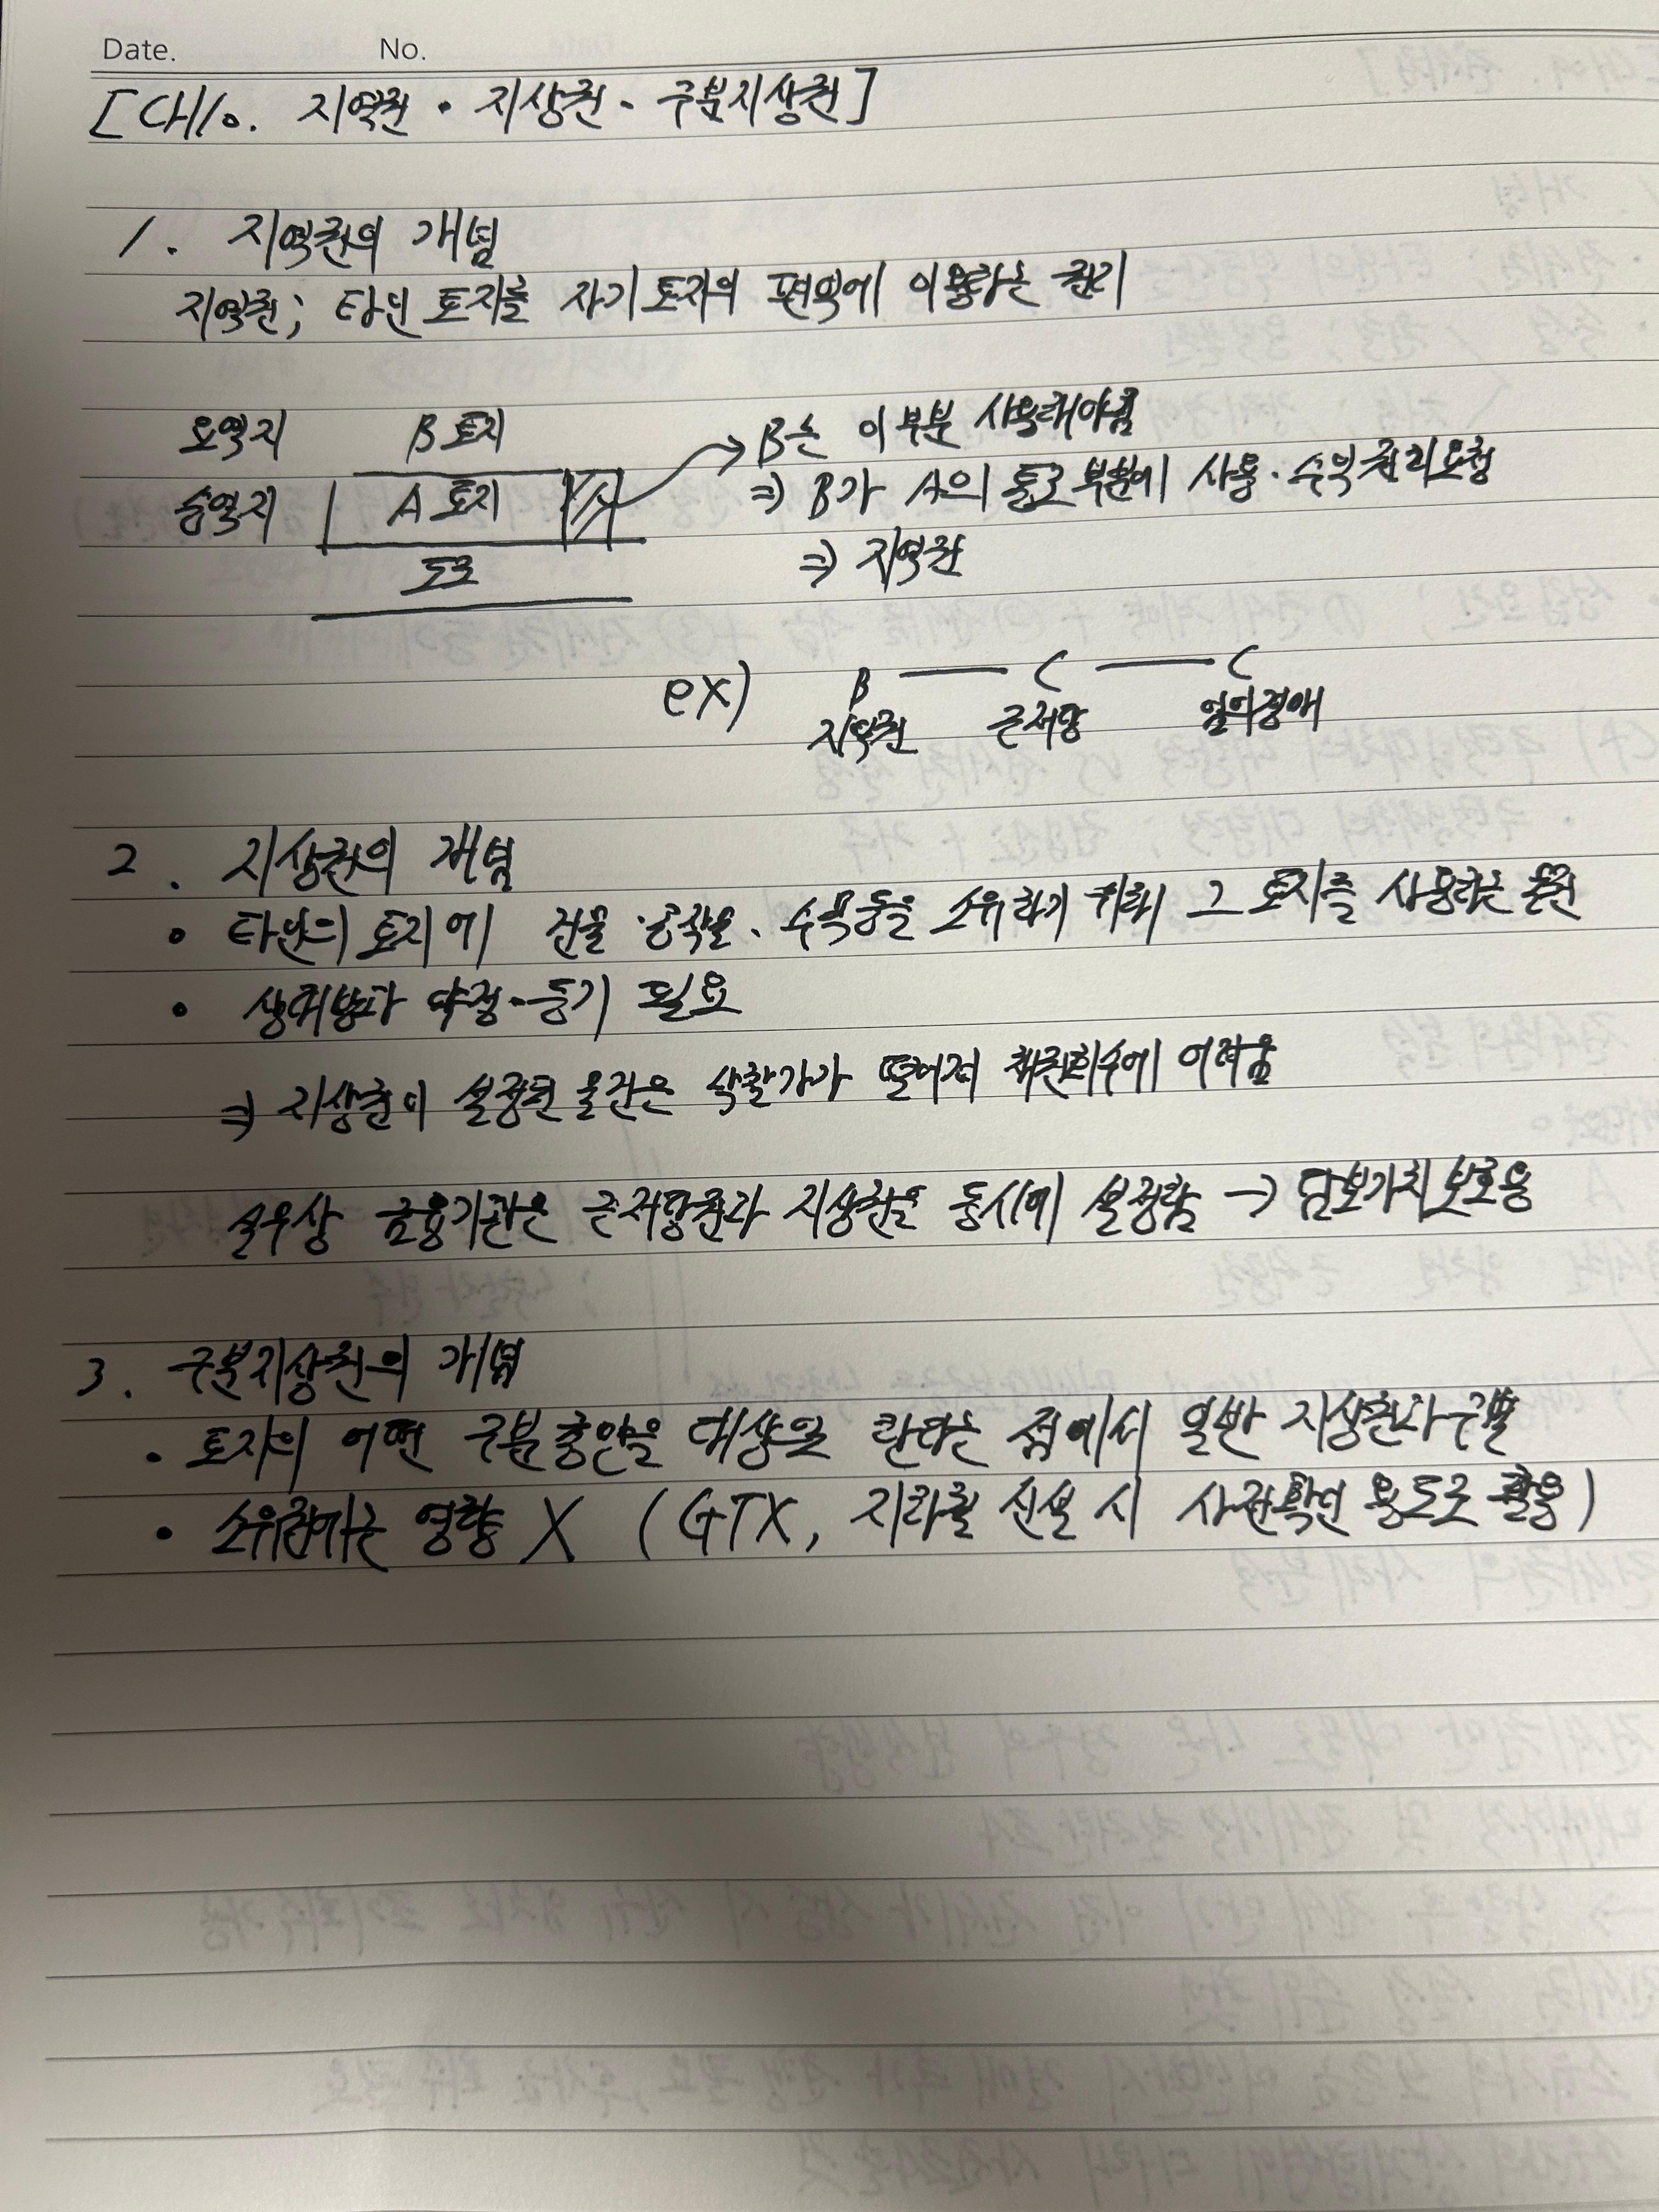 Date. No.
[Ch10. 지역권 · 지상권 · 구분지상권]
1. 지역권의 개념
지역권; 타인 토지를 자기 토지의 편익에 이용하는 권리
요역지 B 토지
승역지 A 토지
도로
B는 이 부분 사용해야됨
⇒ B가 A의 통로 부분에 사용·수익 권리 요청
⇒ 지역권
ex) B — C — C
지역권 근저당 임의경매
2. 지상권의 개념
• 타인의 토지에 건물·공작물·수목 등을 소유하기 위해 그 토지를 사용하는 물권
• 상대방과 약정·등기 필요
⇒ 지상권이 설정된 물건은 낙찰가가 떨어져 채권회수에 어려움
실무상 금융기관은 근저당권과 지상권을 동시에 설정함 → 담보가치보호용
3. 구분지상권의 개념
• 토지의 어떤 구분층만을 대상으로 한다는 점에서 일반 지상권과 구별
• 소유권에는 영향 X (GTX, 지하철 신설 시 사전확인 용도로 활용)